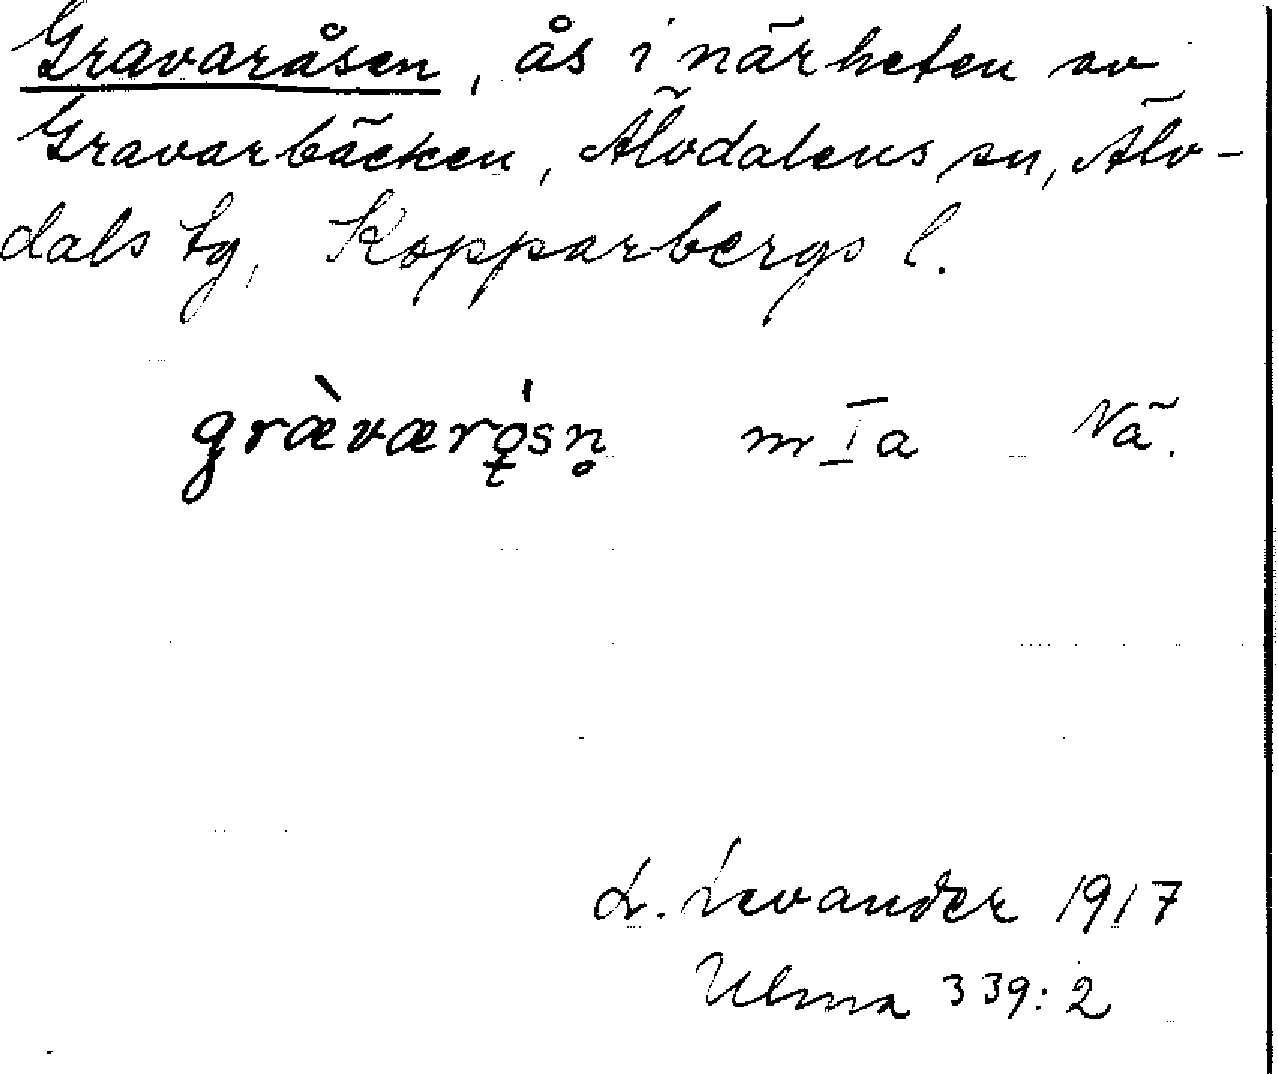 Gravaråsen, ås i närheten av
Gravarbäcken, Älvdalens sn, Älv-
dals tg, Kopparbergs l.
græ̀værǫ́sn̥ m I a Nä.
L. Levander 1917
Ulma 339:2